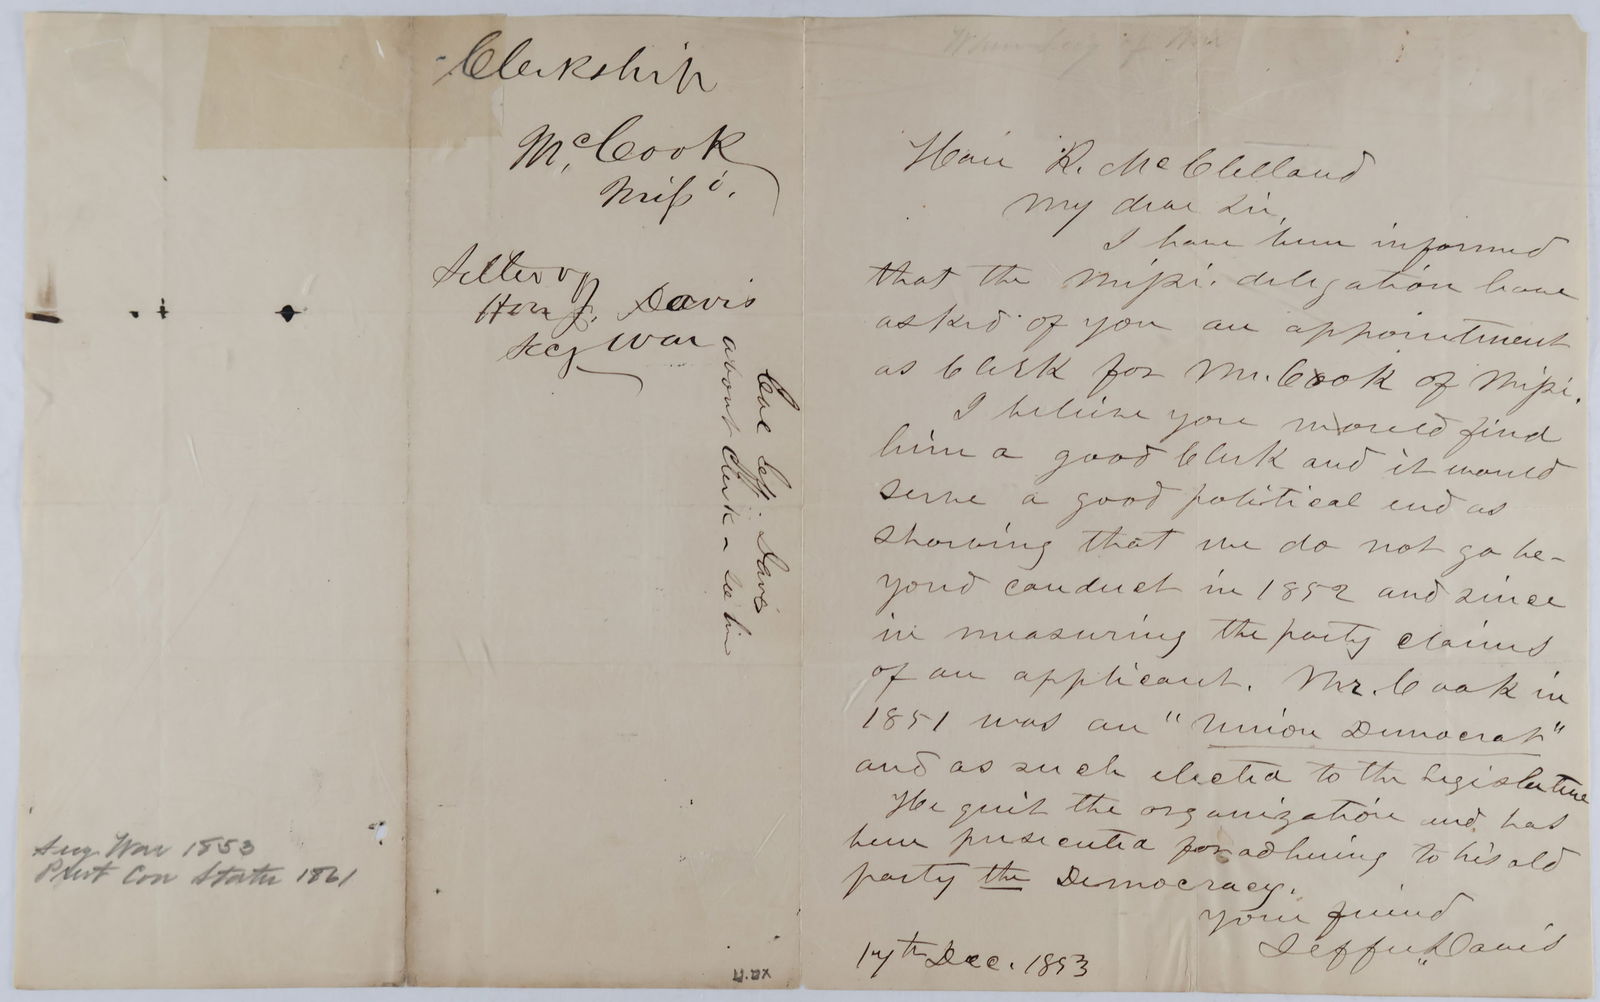 Clerkship
McCook
Missi.
Letter of
Hon J. Davis
Secy War
Col Jeff: Davis
about Clerk - see him
Secy War 1853
Prest Con States 1861
When Secy of War
Hon R. McClelland
My dear Sir,
I have been informed
that the Missi. delegation have
asked of you an appointment
as Clerk for Mr. Cook of Missi.
I believe you would find
him a good Clerk and it would
serve a good political end as
showing that we do not go be-
yond conduct in 1852 and since
in measuring the party claims
of an applicant. Mr. Cook in
1851 was an "Union Democrat"
and as such elected to the Legislature
He quit the organization and has
been persecuted for adhering to his old
party the Democracy.
your friend
Jeffn. Davis
17th Dec. 1853